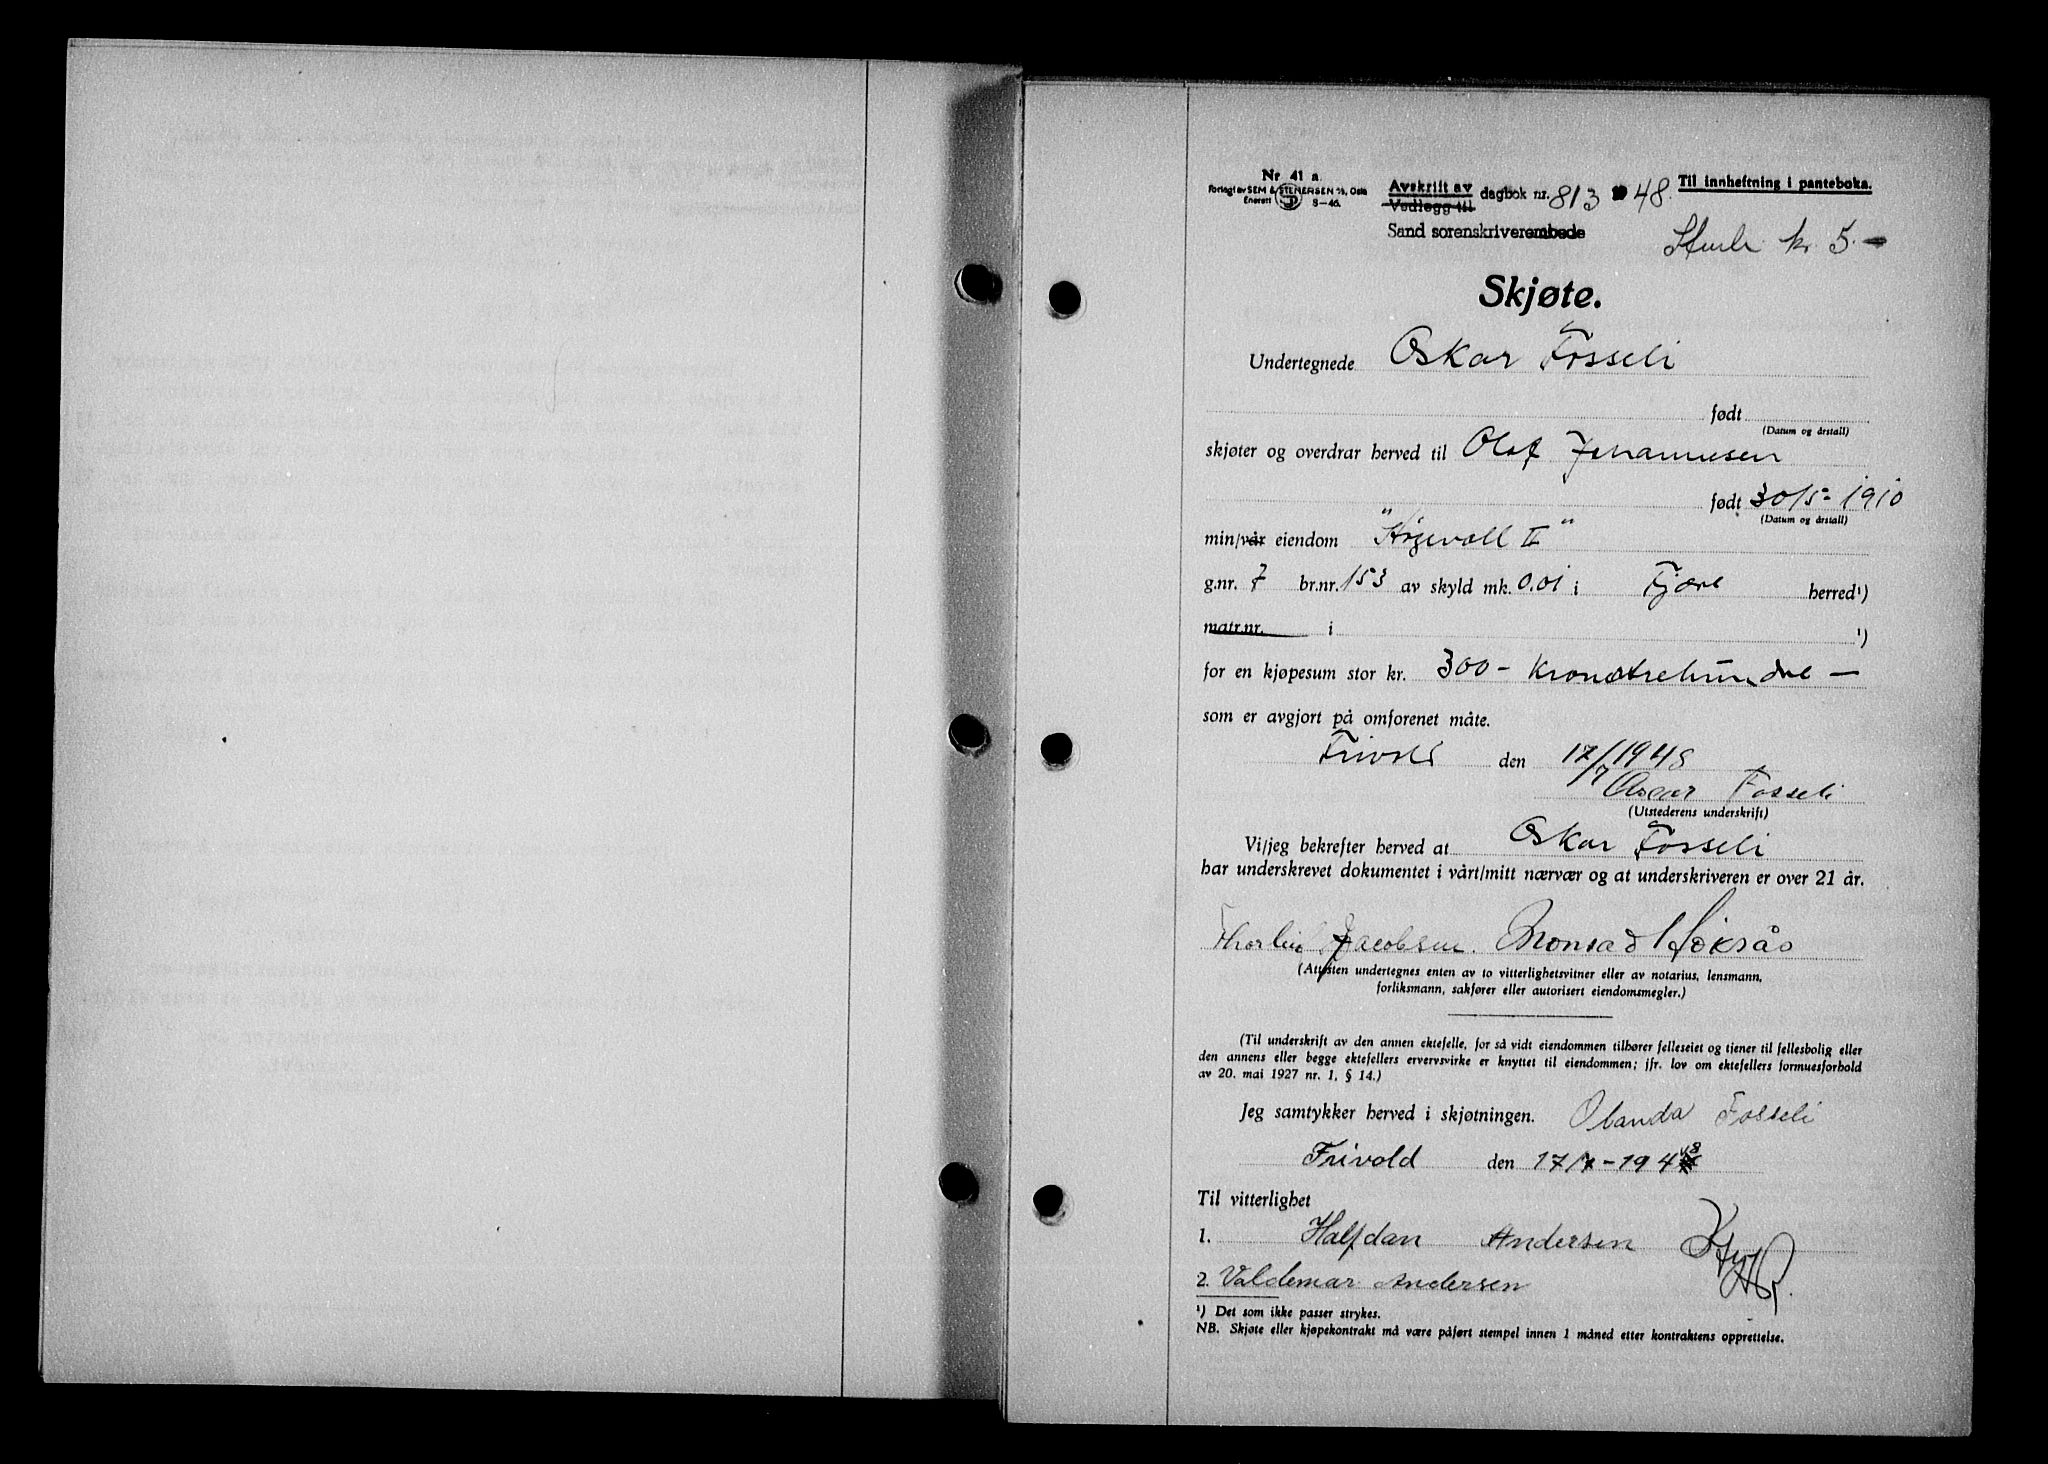 Nr. 41 a.
Forlagt av SEM & STENERSEN A/S, Oslo
Enerett SP 8-46.
Avskrift av
Vedlegg til
dagbok nr. 813 1948.
Til innheftning i panteboka.
Sand sorenskriverembede
kr 5.-
Skjøte.
Undertegnede Oskar Fosseli
født
(Datum og årstall)
skjøter og overdrar herved til Olaf Johannesen
født 30/5-1910
(Datum og årstall)
min/vår eiendom II"
g.nr. 7 br.nr. 153 av skyld mk. 0.01 i Fjære herred¹)
matr.nr. i ¹)
for en kjøpesum stor kr. 300 - kronertrehundre -
som er avgjort på omforenet måte.
Frivold den 17/7 1948
Oscar Fosseli
(Utstederens underskrift)
Vi/jeg bekrefter herved at Oskar Fosseli
har underskrevet dokumentet i vårt/mitt nærvær og at underskriveren er over 21 år.
Jacobsen.
(Attesten undertegnes enten av to vitterlighetsvitner eller av notarius, lensmann,
forliksmann, sakfører eller autorisert eiendomsmegler.)
(Til underskrift av den annen ektefelle, for så vidt eiendommen tilhører felleseiet og tjener til fellesbolig eller
den annens eller begge ektefellers ervervsvirke er knyttet til eiendommen; jfr. lov om ektefellers formuesforhold
av 20. mai 1927 nr. 1, § 14.)
Jeg samtykker herved i skjøtningen. Olanda Fosseli
Frivold den 17/7-1948
Til vitterlighet
1. Halfdan Andersen
2. Valdemar Andersen
¹) Det som ikke passer strykes.
NB. Skjøte eller kjøpekontrakt må være påført stempel innen 1 måned etter kontraktens opprettelse.